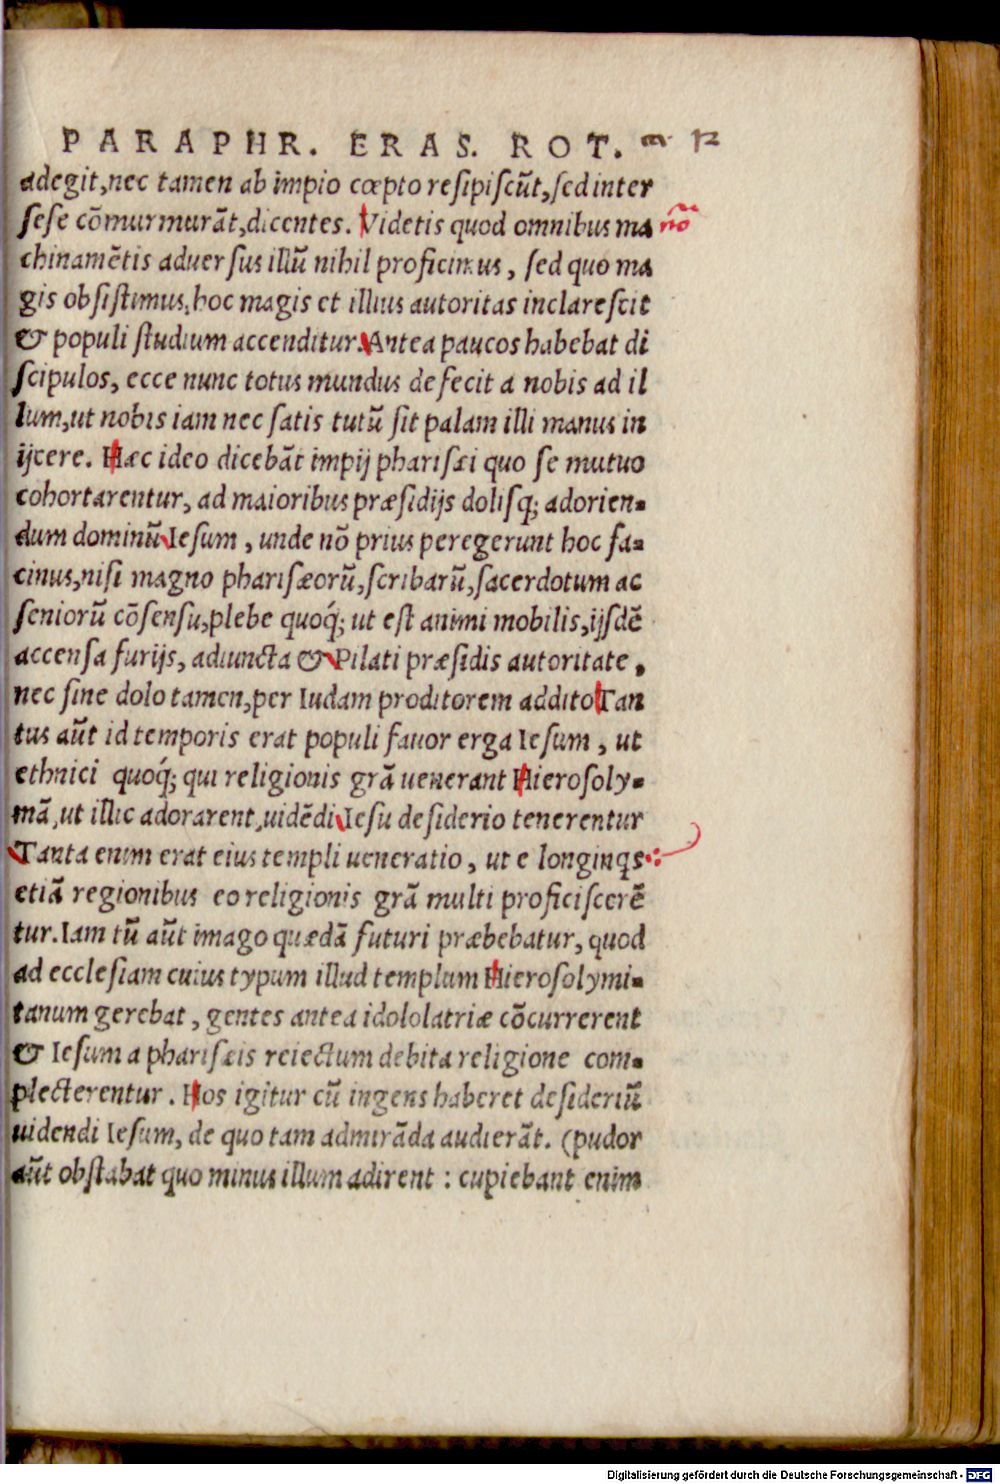 PARAPHR. ERAS. ROT. 12
adegit, nec tamen ab impio cœpto resipiscūt, sed inter
sese cōmurmurāt, dicentes. Videtis quod omnibus ma nō
chinamētis aduersus illū nihil proficimus, sed quo ma
gis obsistimus, hoc magis et illius autoritas inclarescit
& populi studium accenditur. Antea paucos habebat di
scipulos, ecce nunc totus mundus defecit a nobis ad il
lum, ut nobis iam nec satis tutū sit palam illi manus in
ijcere. Hæc ideo dicebāt impij pharisæi quo se mutuo
cohortarentur, ad maioribus præsidijs dolisq; adorien-
dum dominū Iesum, unde nō prius peregerunt hoc fa-
cinus, nisi magno pharisæorū, scribarū, sacerdotum ac
seniorū cōsensu, plebe quoq́; ut est animi mobilis, ijsdē
accensa furijs, adiuncta & Pilati præsidis autoritate,
nec sine dolo tamen, per Iudam proditorem addito Tan
tus aūt id temporis erat populi fauor erga Iesum, ut
ethnici quoq́; qui religionis grā uenerant Hierosoly-
mā, ut illic adorarent, uidēdi Iesu desiderio tenerentur
Tanta enim erat eius templi ueneratio, ut e longinqs
etiā regionibus eo religionis grā multi proficiscerē
tur. Iam tū aūt imago quædā futuri præbebatur, quod
ad ecclesiam cuius typum illud templum Hierosolymi-
tanum gerebat, gentes antea idololatriæ cōcurrerent
& Iesum a pharisæis reiectum debita religione com-
plecterentur. Hos igitur cū ingens haberet desideriū
uidendi Iesum, de quo tam admirāda audierāt. (pudor
aūt obstabat quo minus illum adirent : cupiebant enim
Digitalisierung gefördert durch die Deutsche Forschungsgemeinschaft - DFG